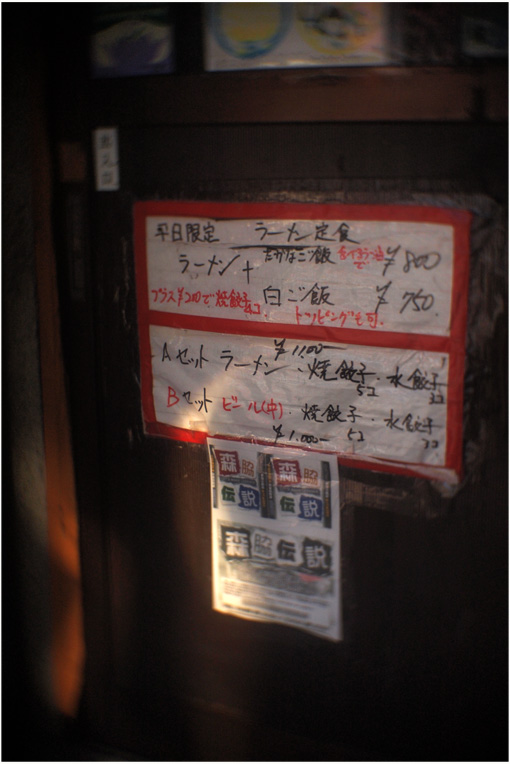 平日限定 ラーメン定食
ラーメン + たかなご飯 で ¥800
白ご飯 ¥750.
プラス¥200で焼餃子 トッピングも可.
Aセット ラーメン・焼餃子・水餃子
¥1,100-
5コ 3コ
Bセット ビール(中)・焼餃子・水餃子
¥1,000- 5コ 3コ
森脇 森脇
伝説 伝説
森脇伝説